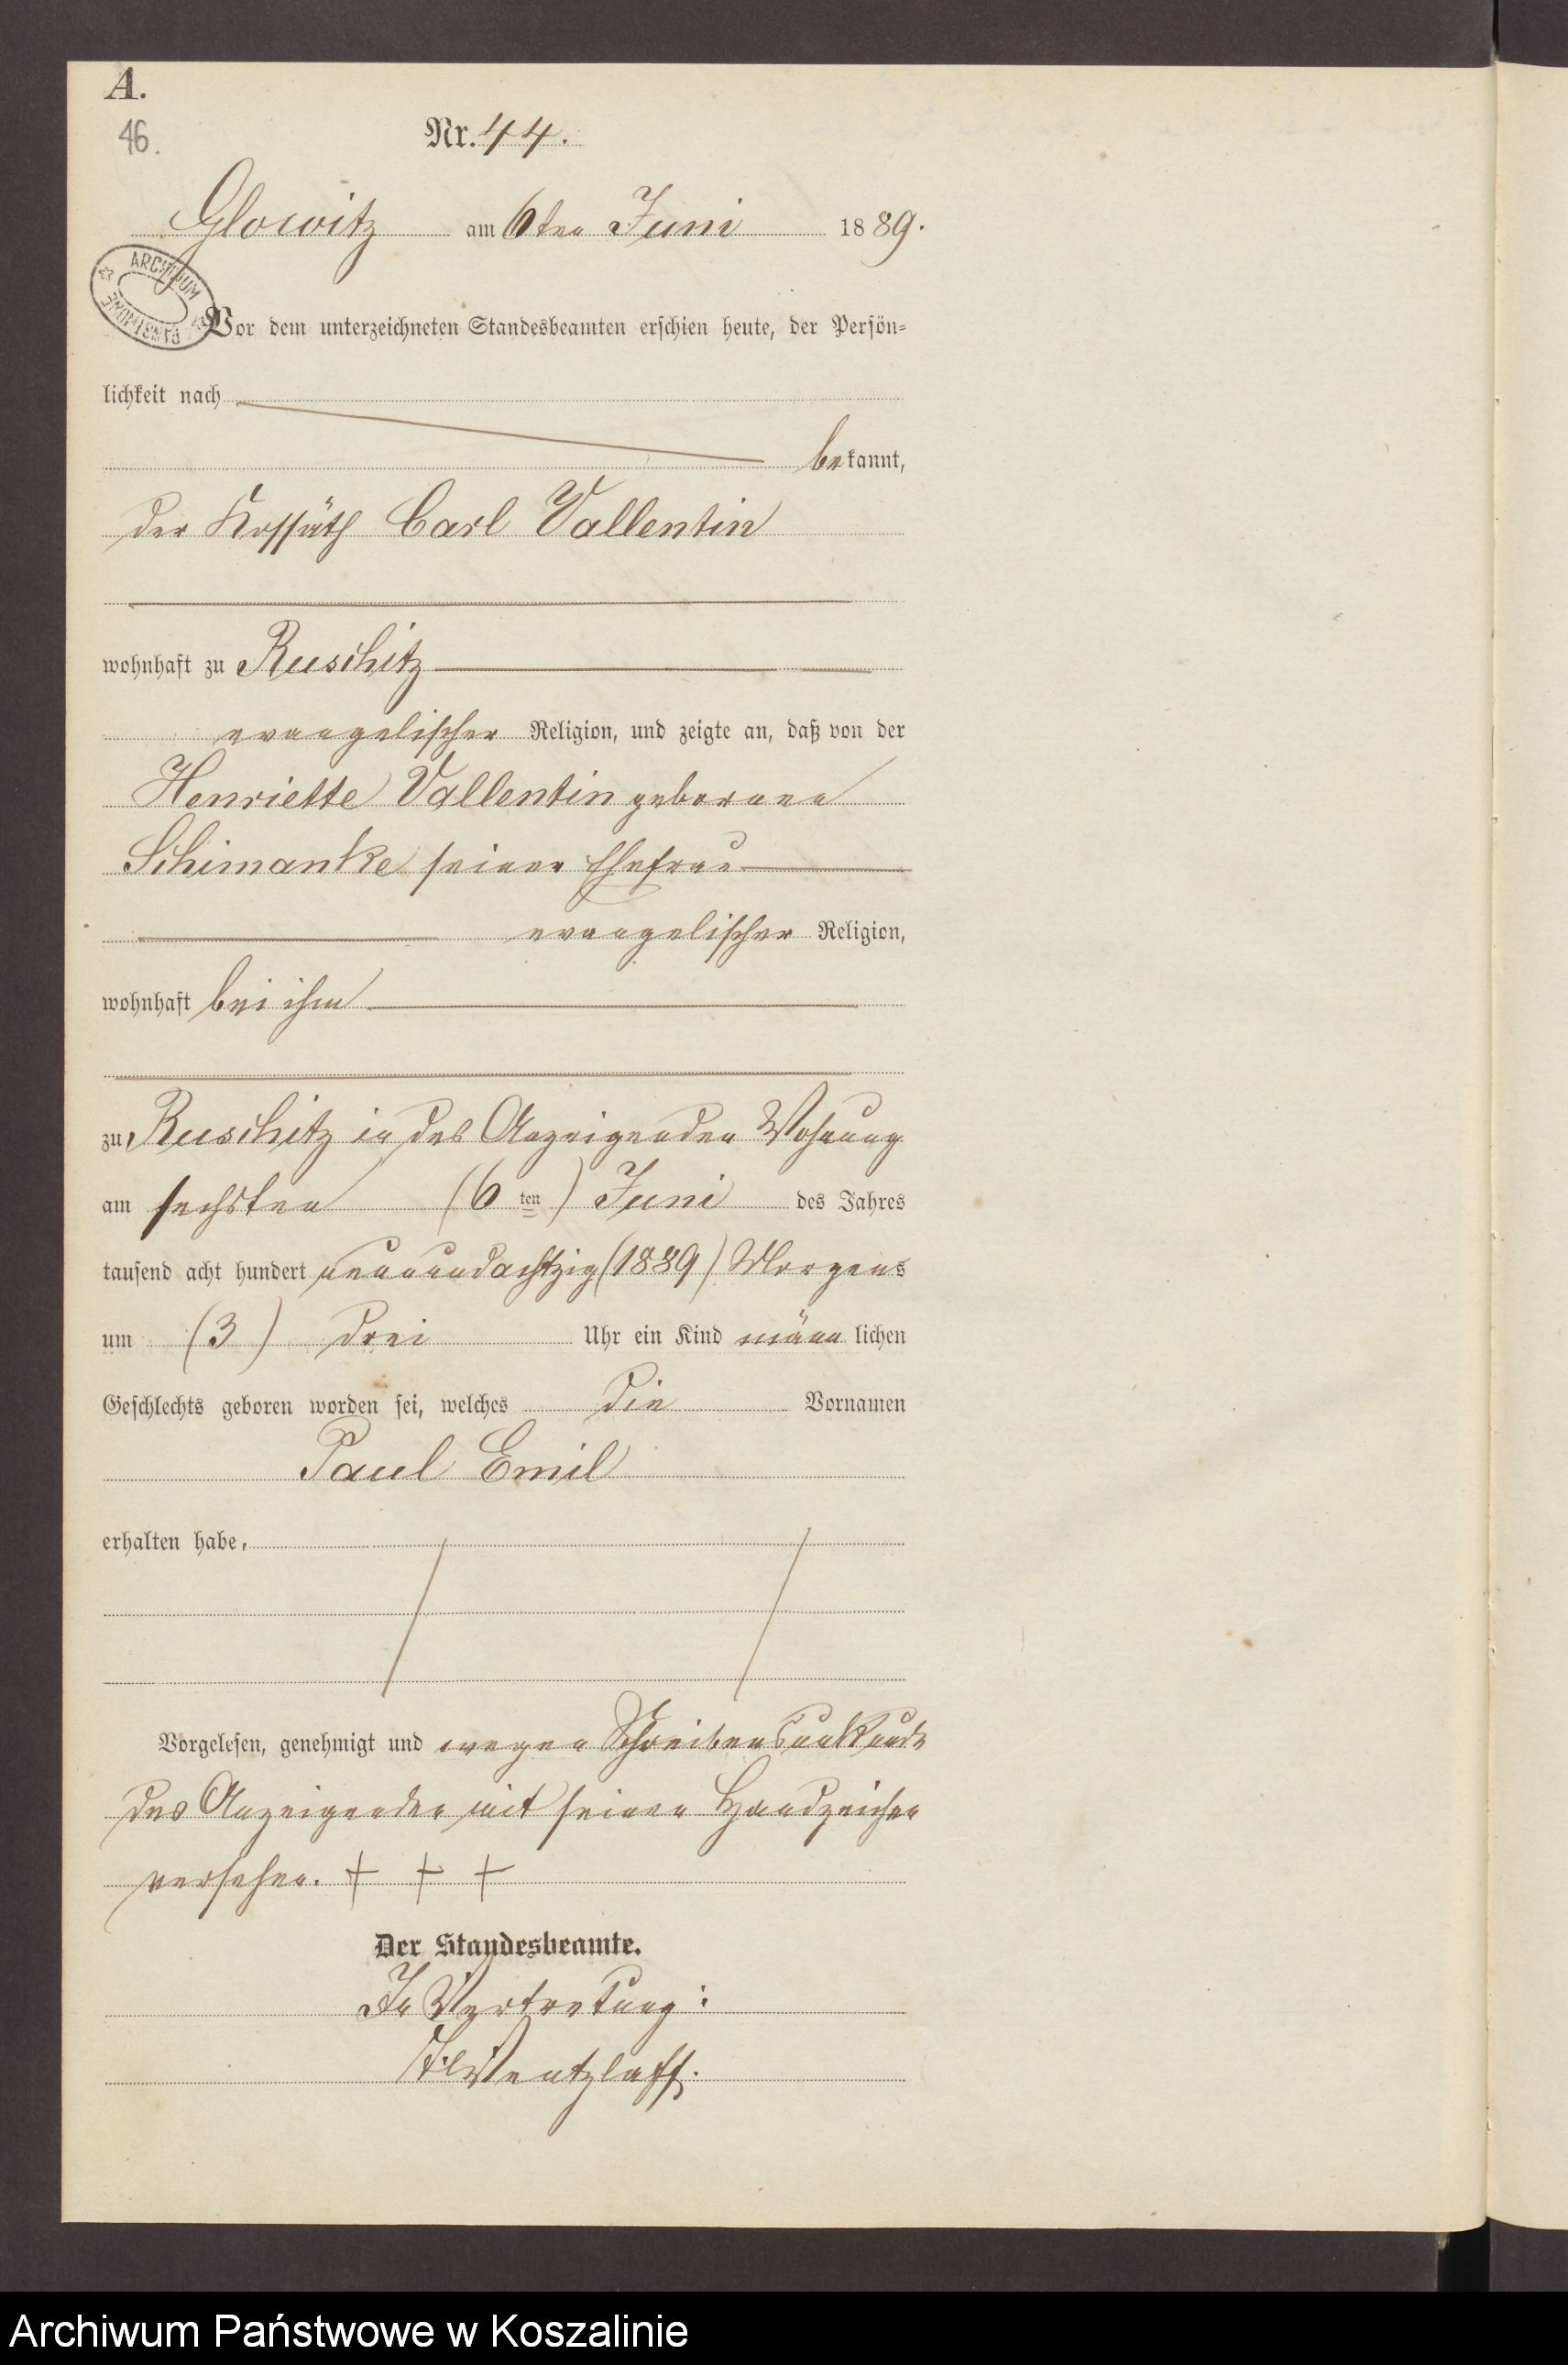 A.
46.
Nr. 44.
Glowitz am 6ten Juni 1889.
ARCHIWUM PAŃSTWOWE
Vor dem unterzeichneten Standesbeamten erschien heute, der Persön=
lichkeit nach
bekannt,
der Kossäth Carl Vallentin
wohnhaft zu Ruschitz
evangelischer Religion, und zeigte an, daß von der
Henriette Vallentin geborenen
Schimanke seiner Ehefrau
evangelischer Religion,
wohnhaft bei ihm
zu Ruschitz in des Anzeigenden Wohnung
am sechsten (6 ten) Juni des Jahres
tausend acht hundert neunundachtzig (1889) Morgens
um (3) drei Uhr ein Kind männlichen
Geschlechts geboren worden sei, welches die Vornamen
Paul Emil
erhalten habe,
Vorgelesen, genehmigt und wegen Schreibensunkunde
des Anzeigenden mit seinen Handzeichen
versehen. + + +
Der Standesbeamte.
In Vertretung:
Wentzlaff.
Archiwum Państwowe w Koszalinie